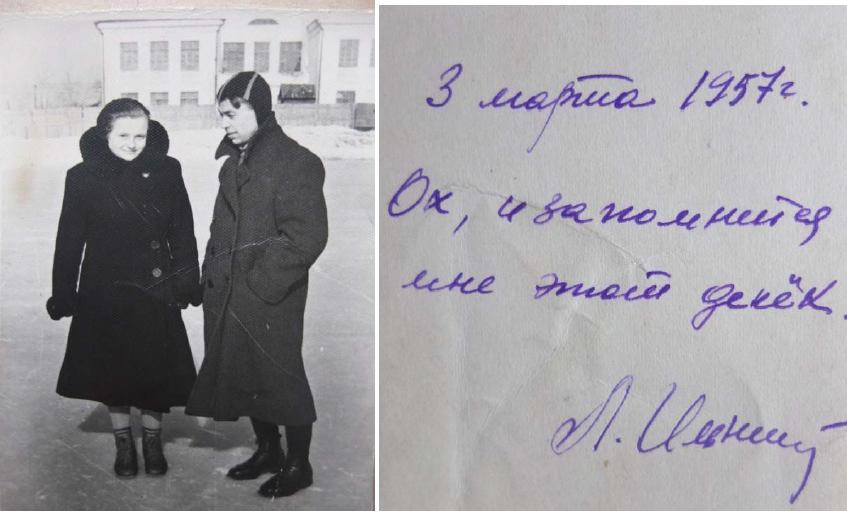 3 марта 1957г.
Ох, и запомнится
мне этот денёк.
Л.